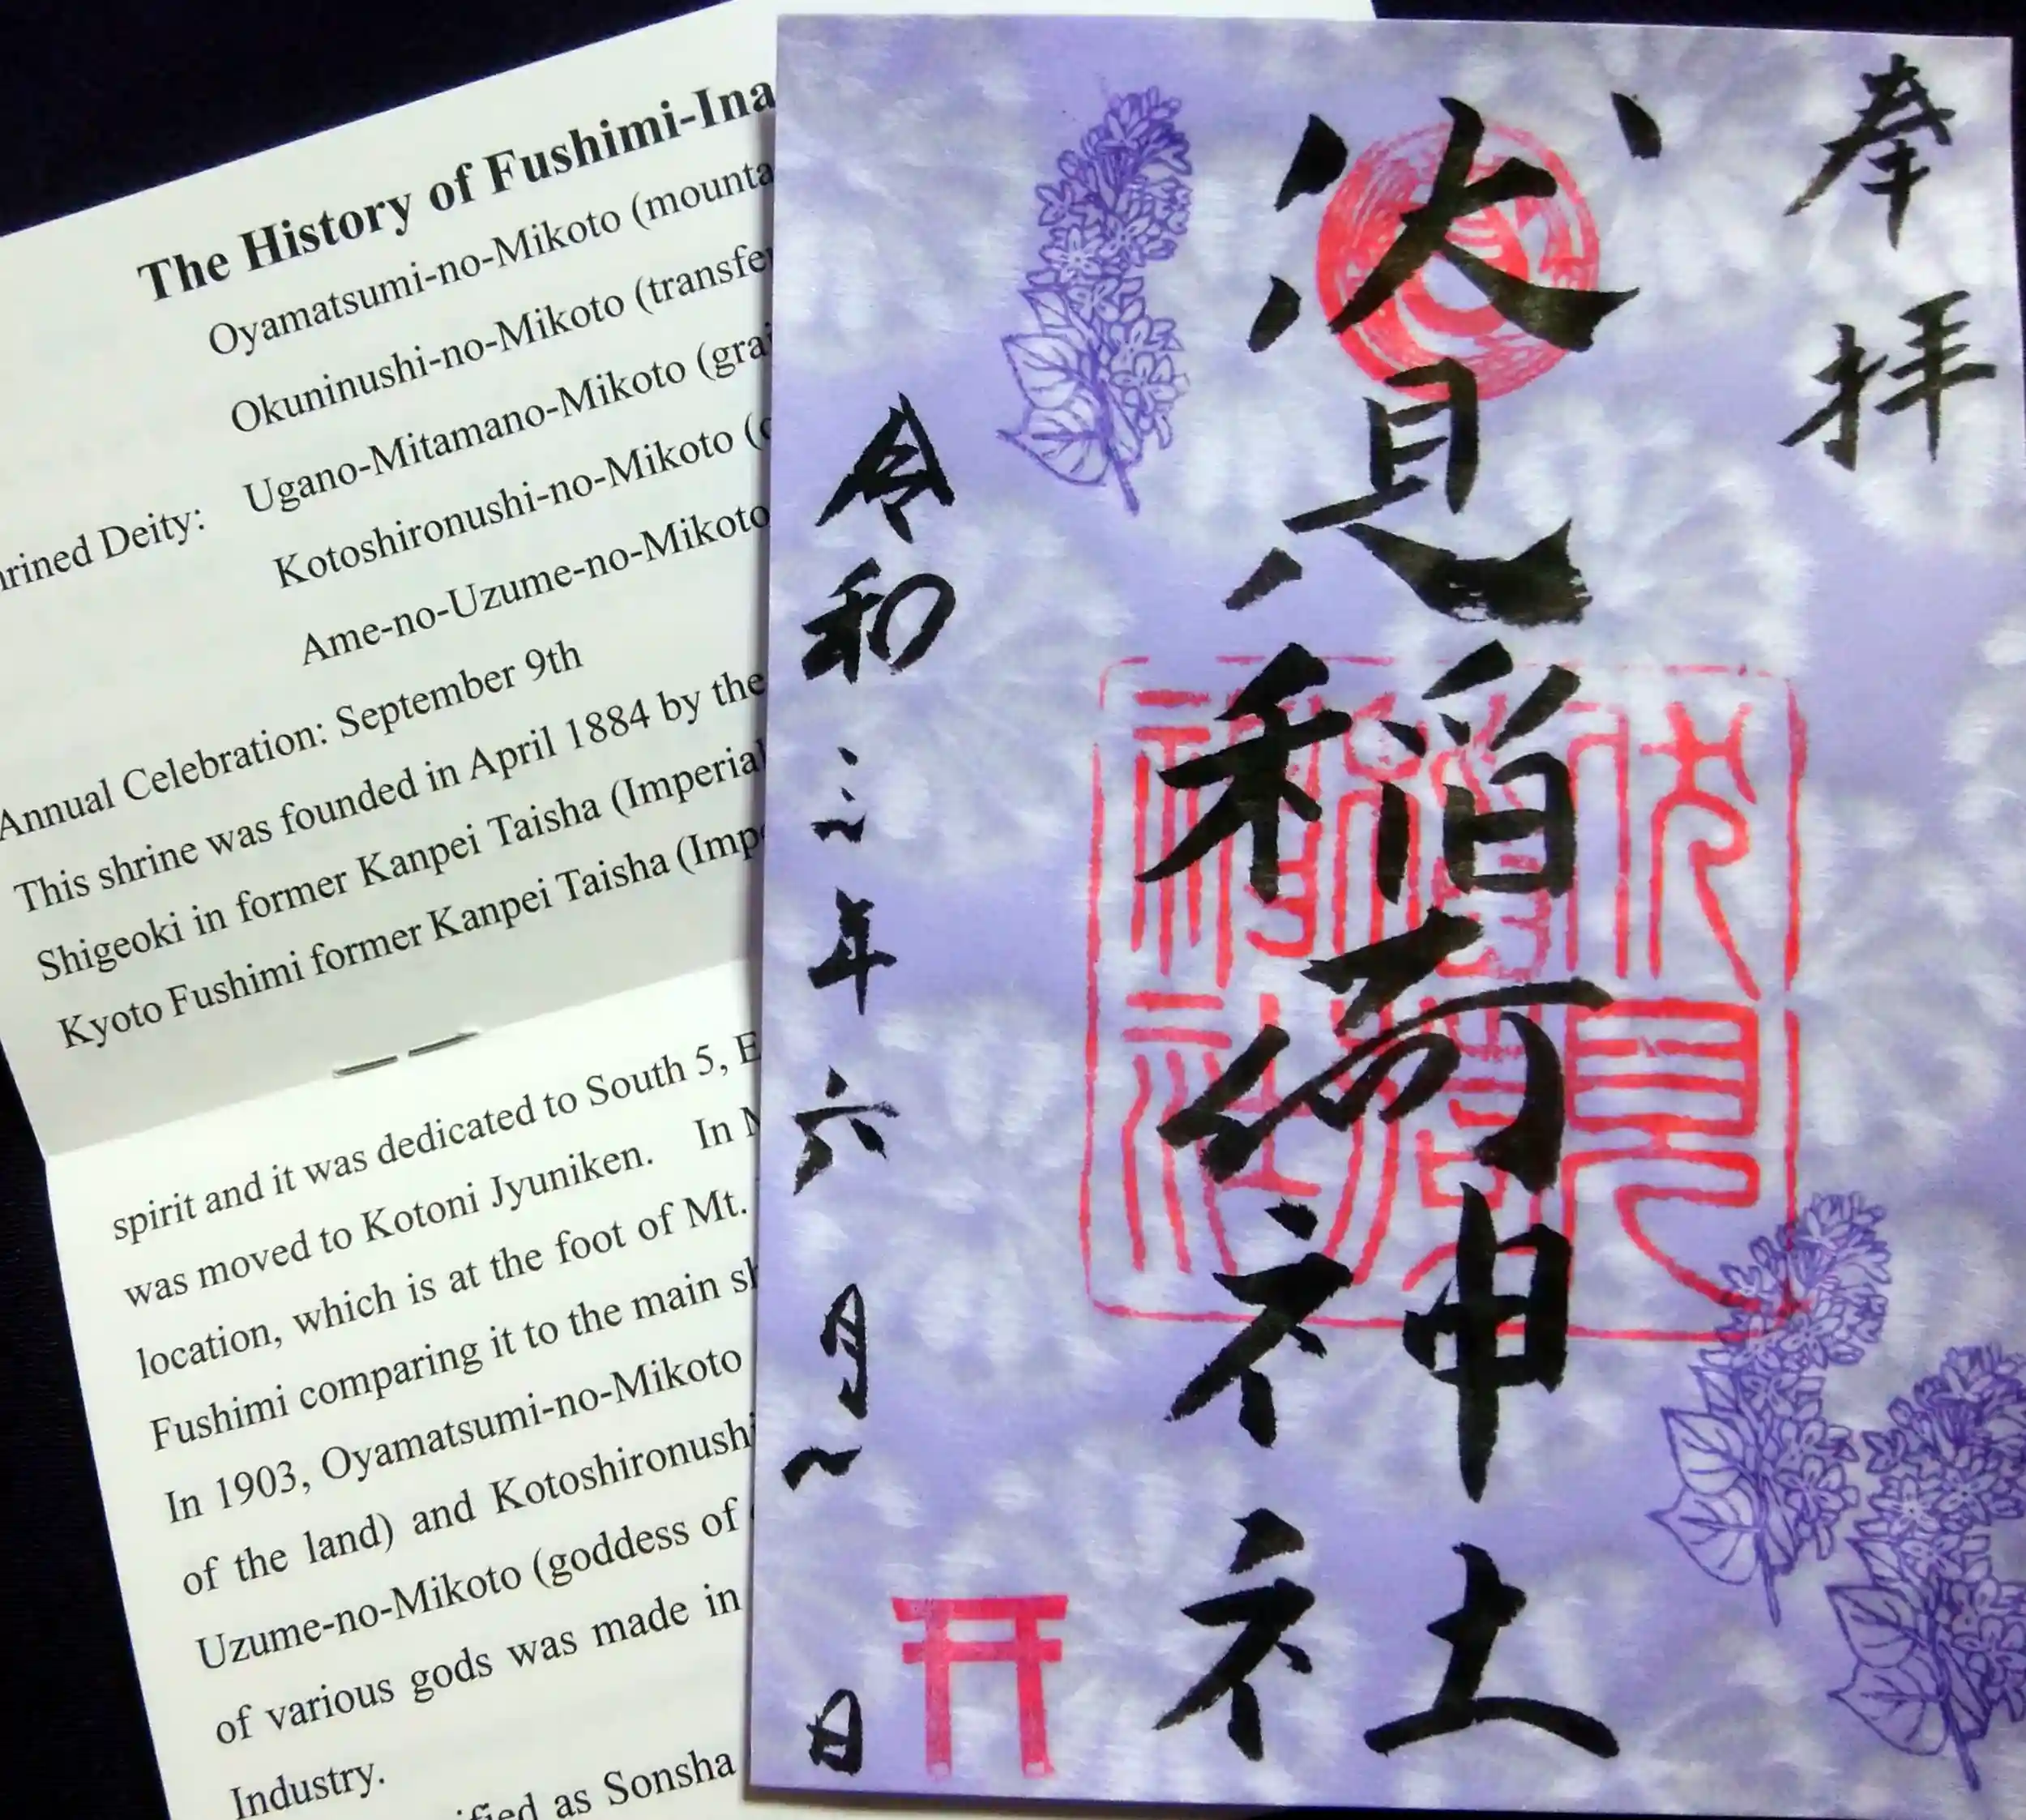 The History of Fushimi-Ina
Oyamatsumi-no-Mikoto (mounta
Okuninushi-no-Mikoto (transfe
rined Deity: Ugano-Mitamano-Mikoto (grai
Kotoshironushi-no-Mikoto (
Ame-no-Uzume-no-Mikoto
Annual Celebration: September 9th
This shrine was founded in April 1884 by the
Shigeoki in former Kanpei Taisha (Imperial
Kyoto Fushimi former Kanpei Taisha (Imp
spirit and it was dedicated to South 5, E
was moved to Kotoni Jyuniken. In M
location, which is at the foot of Mt.
Fushimi comparing it to the main sh
In 1903, Oyamatsumi-no-Mikoto
of the land) and Kotoshironushi
Uzume-no-Mikoto (goddess of
of various gods was made in
Industry.
ified as Sonsha
奉拝
伏見稲荷神社
伏見稲荷神社
令和三年六月一日